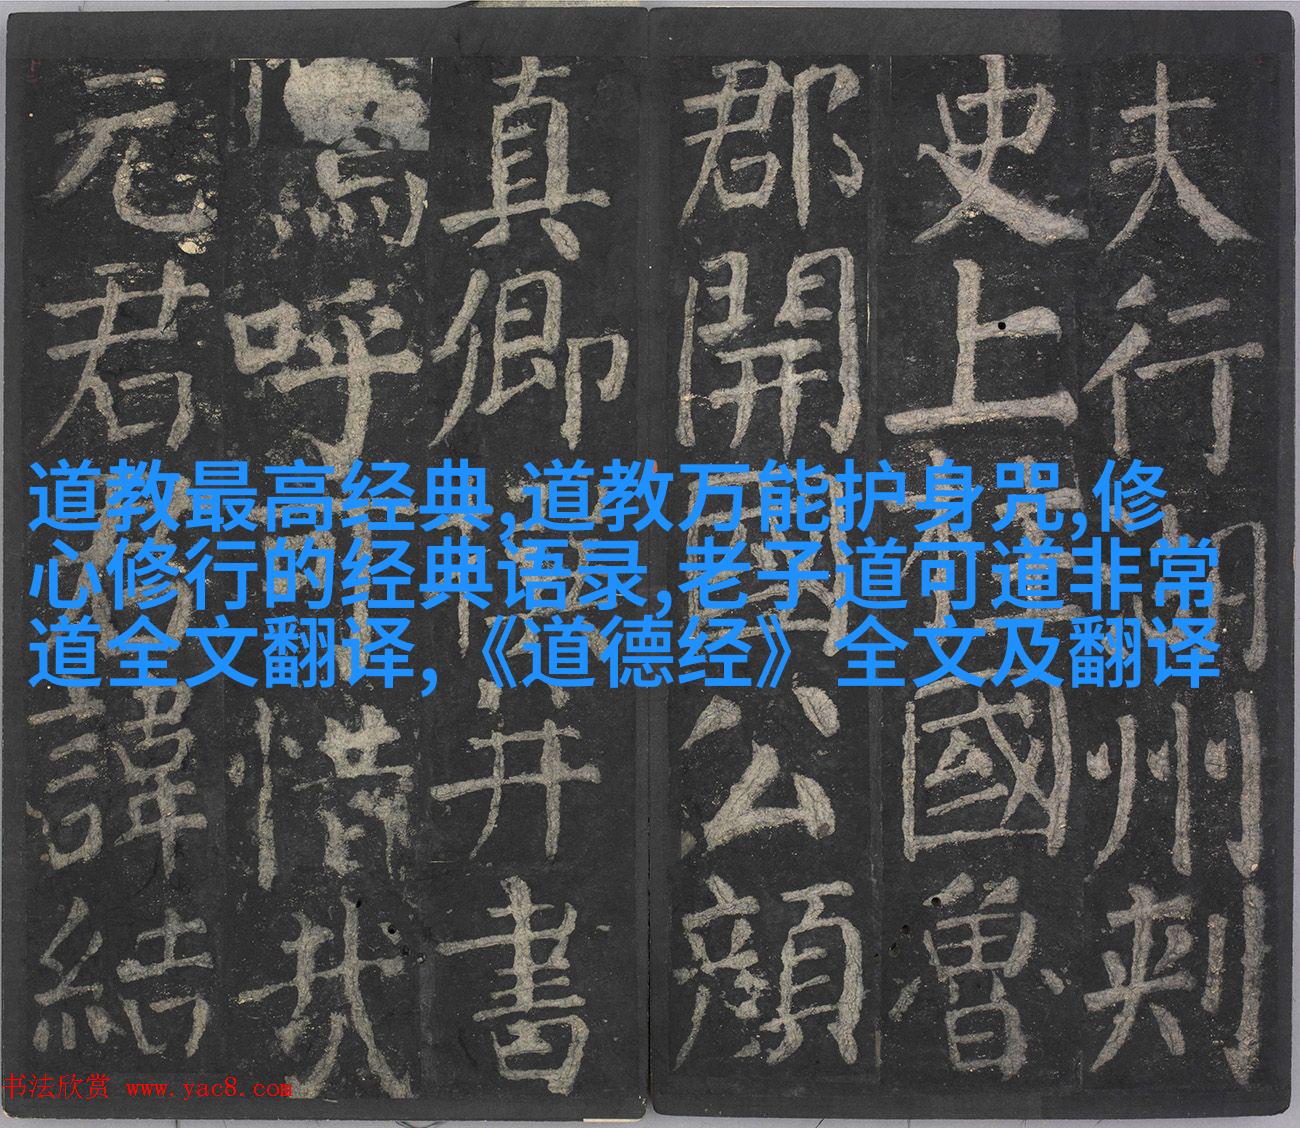 夫行湖州刺
史上柱國魯
郡開國公顏
真卿撰并書
嗚呼可惜哉
元君君諱結
道教最高经典,道教万能护身咒,修
心修行的经典语录,老子道可道非常
道全文翻译,《道德经》全文及翻译
书法欣赏 www.yac8.com